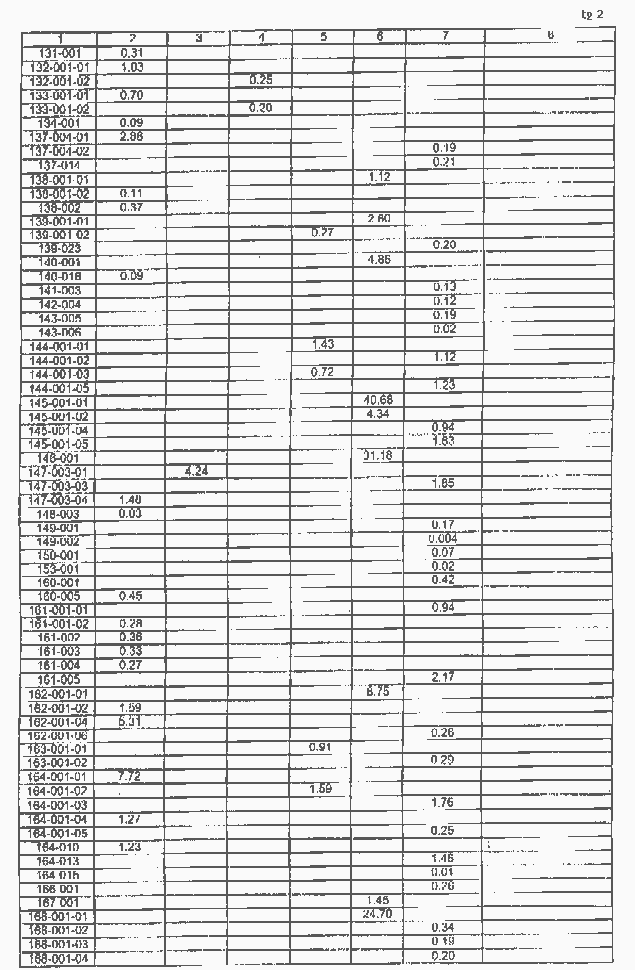 tg 2
1 2 3 4 5 6 7 8
131-001 0.31
132-001-01 1.03
132-001-02 0.25
133-001-01 0.70
133-001-02 0.20
134-001 0.09
137-004-01 2.86
137-004-02 0.19
137-014 0.21
138-001-01 1.12
138-001-02 0.11
138-002 0.37
139-001-01 2.60
139-001-02 0.27
139-023 0.20
140-001 4.86
140-018 0.09
141-003 0.13
142-004 0.12
143-005 0.19
143-006 0.02
144-001-01 1.43
144-001-02 1.12
144-001-03 0.72
144-001-05 1.23
145-001-01 40.68
145-001-02 4.34
145-001-04 0.94
145-001-05 1.63
146-001 31.18
147-003-01 4.24
147-003-03 1.85
147-003-04 1.48
148-003 0.03
149-001 0.17
149-002 0.004
150-001 0.07
153-001 0.02
160-001 0.42
160-005 0.45
161-001-01 0.94
161-001-02 0.28
161-002 0.36
161-003 0.33
161-004 0.27
161-005 2.17
162-001-01 6.75
162-001-02 1.59
162-001-04 5.31
162-001-06 0.26
163-001-01 0.91
163-001-02 0.29
164-001-01 7.72
164-001-02 1.59
164-001-03 1.76
164-001-04 1.27
164-001-05 0.25
164-010 1.23
164-013 1.46
164 015 0.01
166 001 0.26
167 001 1.45
168-001-01 24.70
168-001-02 0.34
168-001-03 0.19
168-001-04 0.20